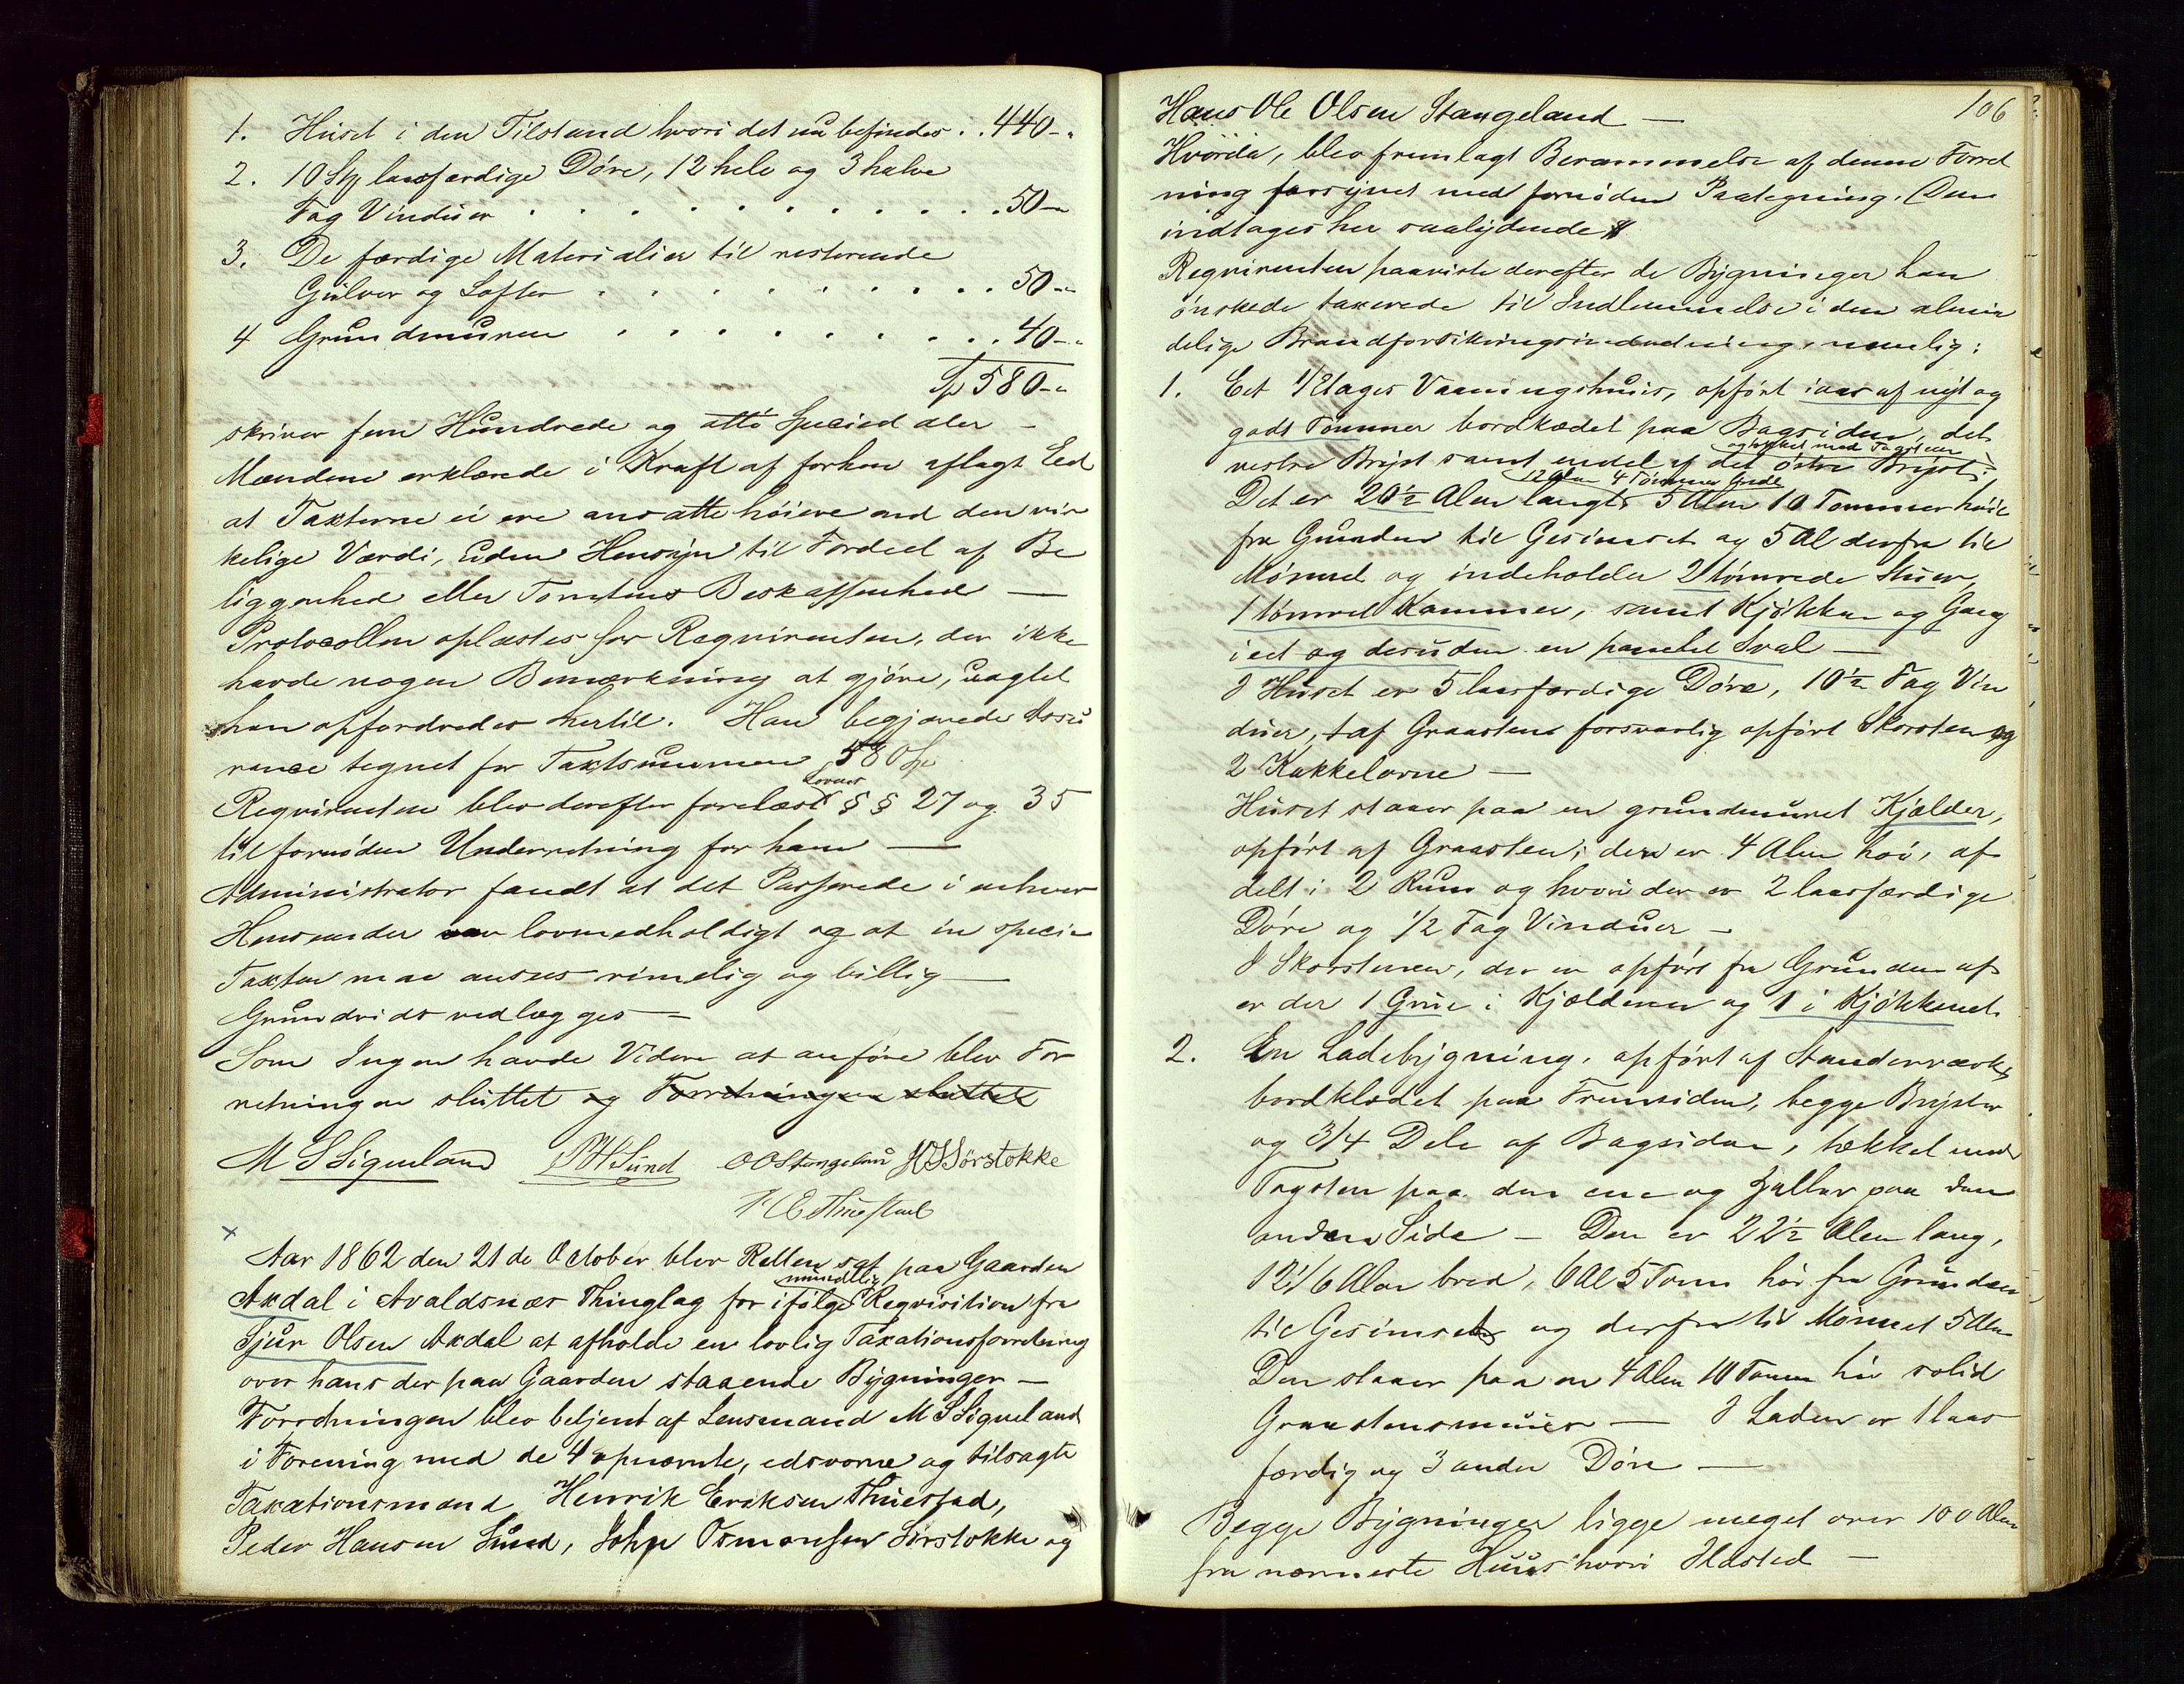 1. Huset i den Tilstand hvori det nu befindes . . 440-"
2. 10 Stk laasfærdige Døre, 12 hele og 3 halve
Fag Vinduer . . . . . . . . . . . . 50-"
3. De færdige Materialier til resterende
Gulver og Lofter . . . . . . . . . . 50-"
4 Grundmuren . . . . . . . . . 40-"
Sp 580-"
skriver fem Hundrede og otti Speciedaler –
Mændene erklærede i Kraft af forhen aflagt Eed
at Taxterne ei ere ansatte høiere end den vir
kelige Værdi, uden Hensyn til Fordeel af Be
liggenhed eller Tomtens Beskaffenhed —
Protocollen oplæstes for Reqvirenten, der ikke
havde nogen Bemærkning at gjøre, uagtet
han opfordredes hertil. Han begjærede Assu
rance tegnet for Taxtsummen 580 Sp
Reqvirenten blev derefter forelæst Lovens §§ 27 og 35
til fornøden Underretning for ham —
Administrator fandt at det Passerede i enhver
Henseender var lovmedholdigt og at in specie
Taxten maa ansees rimelig og billig —
Grundrids vedlægges —
Som Ingen havde Videre at anføre blev For
retningen sluttet og Forretningen sluttet
M S Sigueland P H Sund O O Stangeland J O Sørstokke
H E Thuestad
x
Aar 1862 den 21de October blev Retten sat paa Gaarden
Axdal i Avaldsnæs Thinglag for ifølge mundtlig Reqvisition fra
Sjur Olsen Axdal at afholde en lovlig Taxationsforretning
over hans der paa Gaarden staaende Bygninger —
Forretningen blev betjent af Lensmand M S Sigueland
i Forening med de 4 opnævnte, edsvorne og tilsagte
Taxationsmænd Henrik Eriksen Thuestad,
Peder Hansen Sund, John Osmansen Sørstokke og
106
Hans Ole Olsen Stangeland —
Hvorda, blev fremlagt Berammelse af denne Forret
ning forsynet med fornøden Paategning. Den
indtages her saalydende
Reqvirenten paaviste derefter de Bygninger han
ønskede taxerede til Indlemmelse i den almin
delige Brandforsikringsindretning, nemlig:
1. Eet 1 Etages Vaaningshuus, opført iaar af nyt og
godt Tømmer bordklædet paa Bagsiden, det
vestre Bryst samt endel af det østre Bryst og tækket med Tagsteen
Det er 20½ Alen langt, 12 Alen 4 Tommer bredt 5 Alen 10 Tommer høit
fra Grunden til Gesimset og 5 Al derfra til
Mønnet og indeholder 2 tømrede Stuer,
1 tømret Kammer, samt Kjøkken og Gang
i eet og desuden en panelet Sval —
I Huset er 5 laasfærdige Døre, 10½ Fag Vin
duer, 1 af Graasten forsvarlig opført Skorsten og
2 Kakkelovne —
Huset staaer paa en grundmuret Kjælder,
opført af Graasten; den er 4 Alen høi, af
delt i 2 Rum og hvori der er 2 laasfærdige
Døre og 1/2 Fag Vinduer –
I Skorstenen, der er opført fra Grunden af
er der 1 Grue i Kjælderen og 1 i Kjøkkenet.
2. En Ladebygning, opført af Standerværk,
bordklædet paa Fremsiden, begge Bryster
og 3/4 Dele af Bagsiden, tækket med
Tagsten paa den ene og Heller paa den
anden Side — Den er 22½ Alen lang,
12 1/6 Alen bred, 6 Al 5 Tom høi fra Grunden
til Gesimset og derfra til Mønnet 5 Alen
Den staaer paa en 4 Alen 10 Tomm høi solid
Graastensmuur — I Laden er 1 laas
færdig og 3 andre Døre —
Begge Bygninger ligge meget over 100 Alen
fra nærmeste Huus hvori Ildsted —